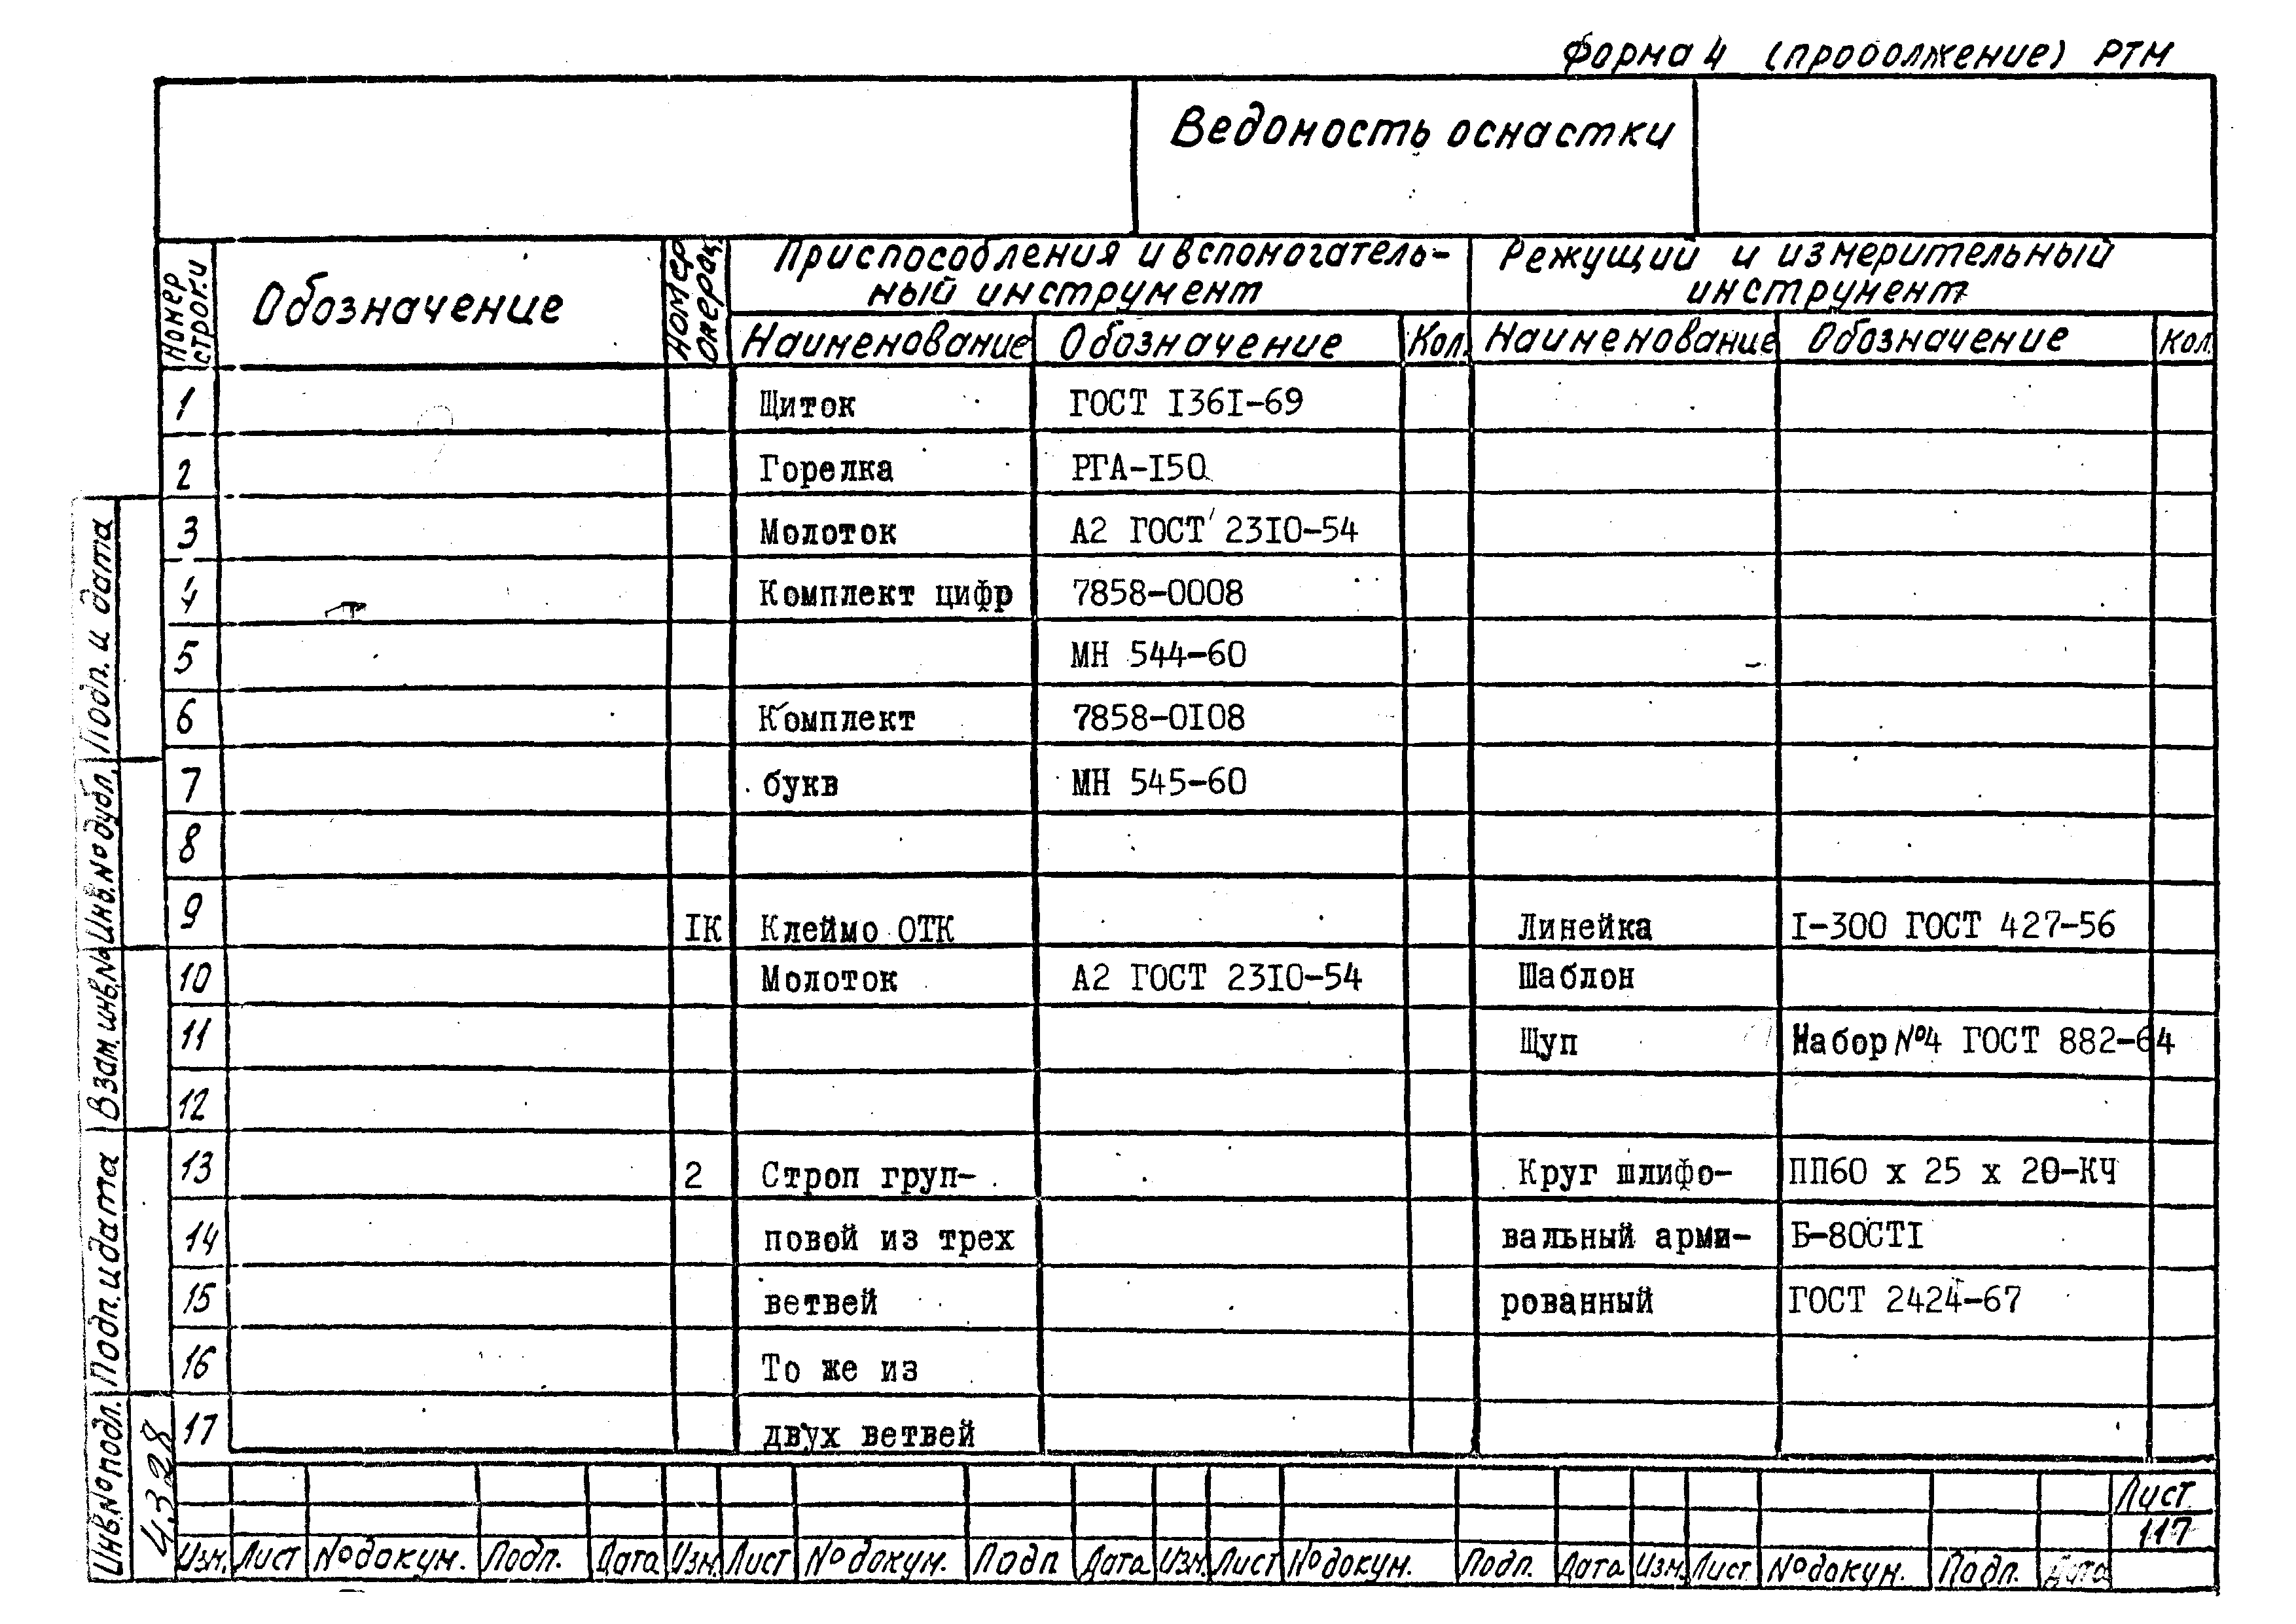 Форма 4 (продолжение) РТМ
Ведомость оснастки
Номер строки
Обозначение
Номер операц.
Приспособления и вспомогатель-
ный инструмент
Режущий и измерительный
инструмент
Наименование Обозначение Кол. Наименование Обозначение Кол.
1 Щиток ГОСТ I36I-69
2 Горелка РГА-I50
3 Молоток А2 ГОСТ 23I0-54
4 Комплект цифр 7858-0008
5 МН 544-60
6 Комплект 7858-0I08
7 букв МН 545-60
8
9 IК Клеймо ОТК Линейка I-300 ГОСТ 427-56
10 Молоток А2 ГОСТ 23I0-54 Шаблон
11 Щуп Набор №4 ГОСТ 882-64
12
13 2 Строп груп- Круг шлифо- ПП60 х 25 х 20-КЧ
14 повой из трех вальный арми- Б-80СТI
15 ветвей рованный ГОСТ 2424-67
16 То же из
17 двух ветвей
Подп. и дата
Инв.№ дубл.
Взам. инв.№
Подп. и дата
Инв.№ подл.
4328
Лист
117
Изм. Лист № докум. Подп. Дата Изм. Лист № докум. Подп Дата Изм. Лист № докум. Подп. Дата Изм. Лист № докум. Подп. Дата